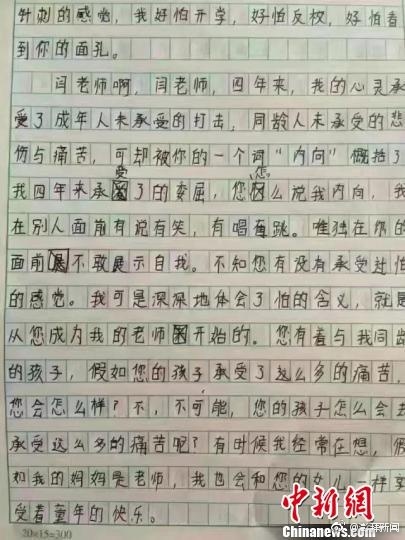 针刺的感觉，我好怕开学，好怕反校，好怕看
到你的面孔。
闫老师啊，闫老师，四年来，我的心灵承
受了成年人未承受的打击，同龄人未承受的悲
伤与痛苦，可却被你的一个词“内向”概括了
我四年来承受了的委屈，您怎么说我内向，我
在别人面前有说有笑，有唱有跳。唯独在您的
面前不敢展示自我。不知您有没有承受过怕
的感觉。我可是深深地体会了怕的含义，就是
从您成为我的老师开始的。您有着与我同龄
的孩子，假如您的孩子承受了这么多的痛苦，
您会怎么样？不，不可能，您的孩子怎么会去
承受这么多的痛苦呢？有时候我经常在想，假
如我的妈妈是老师，我也会和您的女儿一样享
受着童年的快乐。
20×15=300
中新网
Chinanews.com